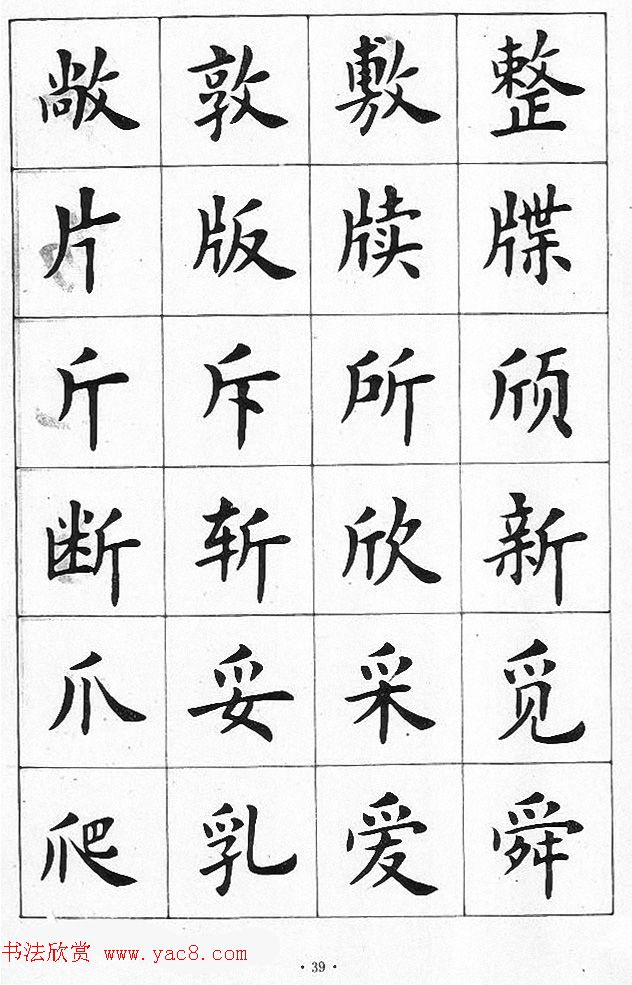 敞敦敷整
片版牍牒
斤斥所颀
断斩欣新
爪妥采觅
爬乳爱舜
书法欣赏 www.yac8.com
·39·